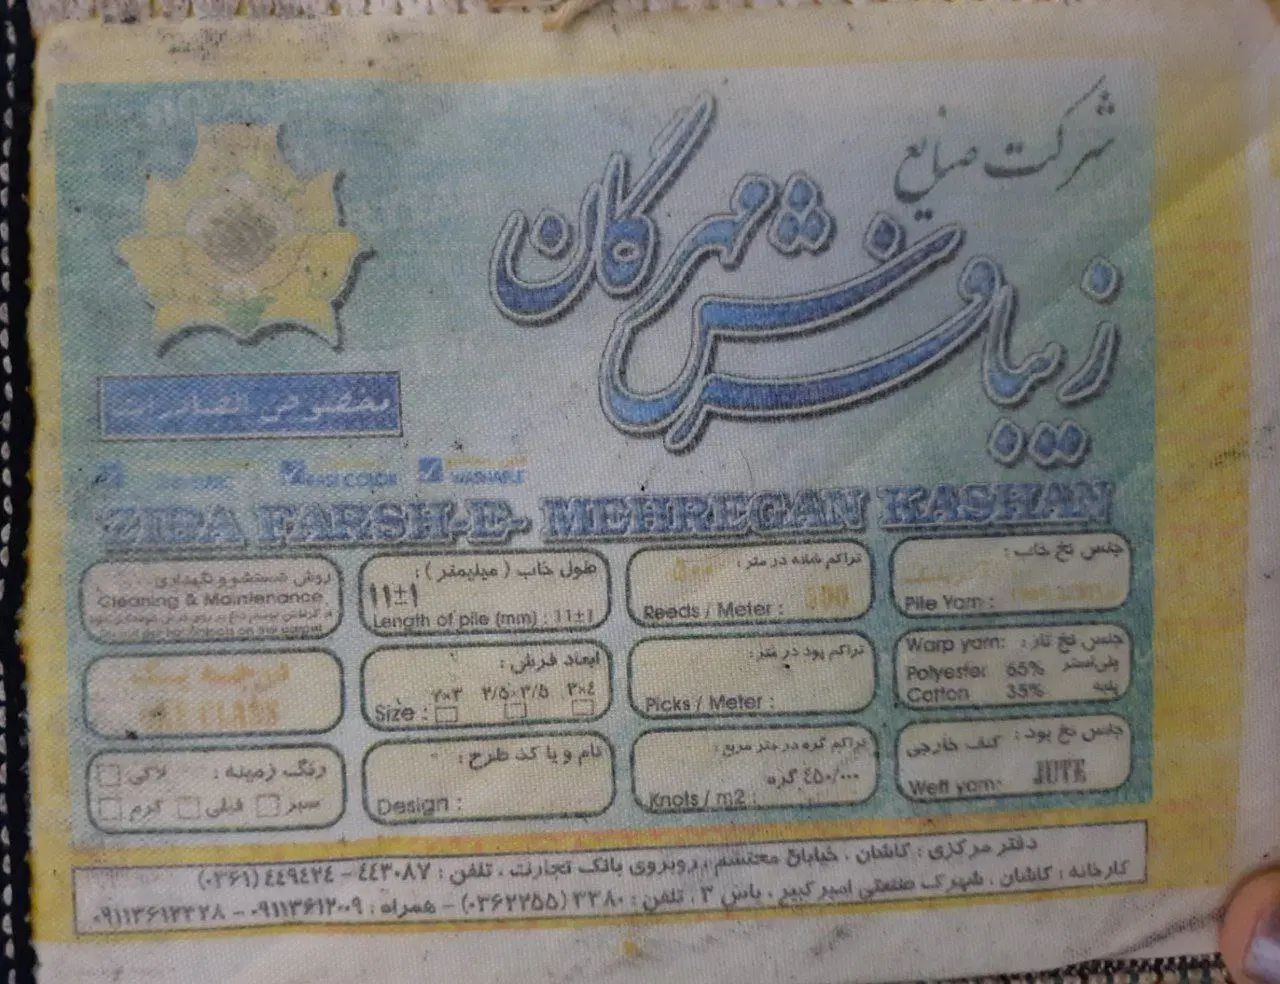 شرکت صنایع
زیبا فرش مهرگان
مخصوص الصادرات
FAST COLOR
WASHABLE
ZIBA FARSH-E- MEHREGAN KASHAN
جنس نخ خاب :
Pile Yarn :
تراکم شانه در متر : ۵۰۰
Reeds / Meter : 500
طول خاب ( میلیمتر ) :
۱۱±۱
Length of pile (mm) : 11±1
روش شستشو و نگهداری
Cleaning & Maintenance
Warp yarn: جنس نخ تار :
Polyester 65% پلی‌استر
Cotton 35% پنبه
تراکم پود در متر :
Picks / Meter :
ابعاد فرش :
۲×۳ ۲/۵×۳/۵ ۳×٤
Size :
درجه یک
ONE CLASS
جنس نخ پود : کنف خارجی
Weft yarn: JUTE
تراکم گره در متر مربع :
٤۵۰/۰۰۰ گره
Knots / m2 :
نام و یا کد طرح :
Design :
رنگ زمینه : لاکی
سبز فیلی کرم
دفتر مرکزی : کاشان ، خیابان محتشم ، روبروی بانک تجارت ، تلفن : ٤٤٣٠٨٧ - ٤٤٩٤٢٤ (٠٣٦١)
کارخانه : کاشان ، شهرک صنعتی امیرکبیر ، یاس ۳ ، تلفن : ۳۳۸۰ (۰۳۶۲۲۵۵) - همراه : ۰۹۱۱۳۶۱۲۰۰۹ - ۰۹۱۱۳۶۱۲۳۲۸